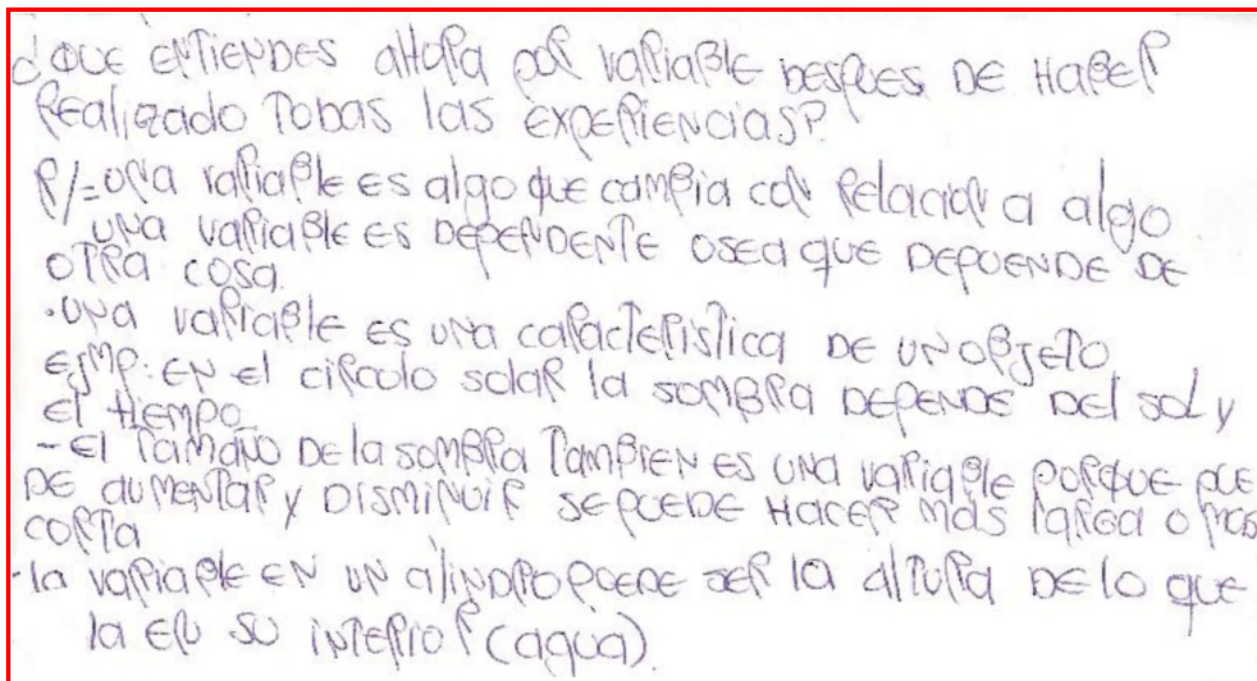 ¿QUE ENTIENDES AHORA POR VARIABLE DESPUES DE HABER
REALIZADO TODAS LAS EXPERIENCIAS?
R/= UNA VARIABLE ES algo que cambia con Relacion a algo
UNA VARIABLE ES DEPENDENTE OSEA QUE DEPUENDE DE
OTRA COSA.
·UNA VARIABLE ES UNA CARACTERISTICA DE UN OBJETO
EJMP: EN el CIRCULO SOLAR la SOMBRA DEPENDE DEL SOL y
El TIEMPO
- El TAMAÑO DE la SOMBRA TAMBIEN ES UNA VARIABLE PORQUE PUE
DE AUMENTAR y DISMINUIR SE PUEDE HACER MÁS LARGA O MAS
CORTA
-la VARIABLE EN UN CILINDRO PUEDE SER la ALTURA DE lo que
la EN SU INTERIOR (agua).